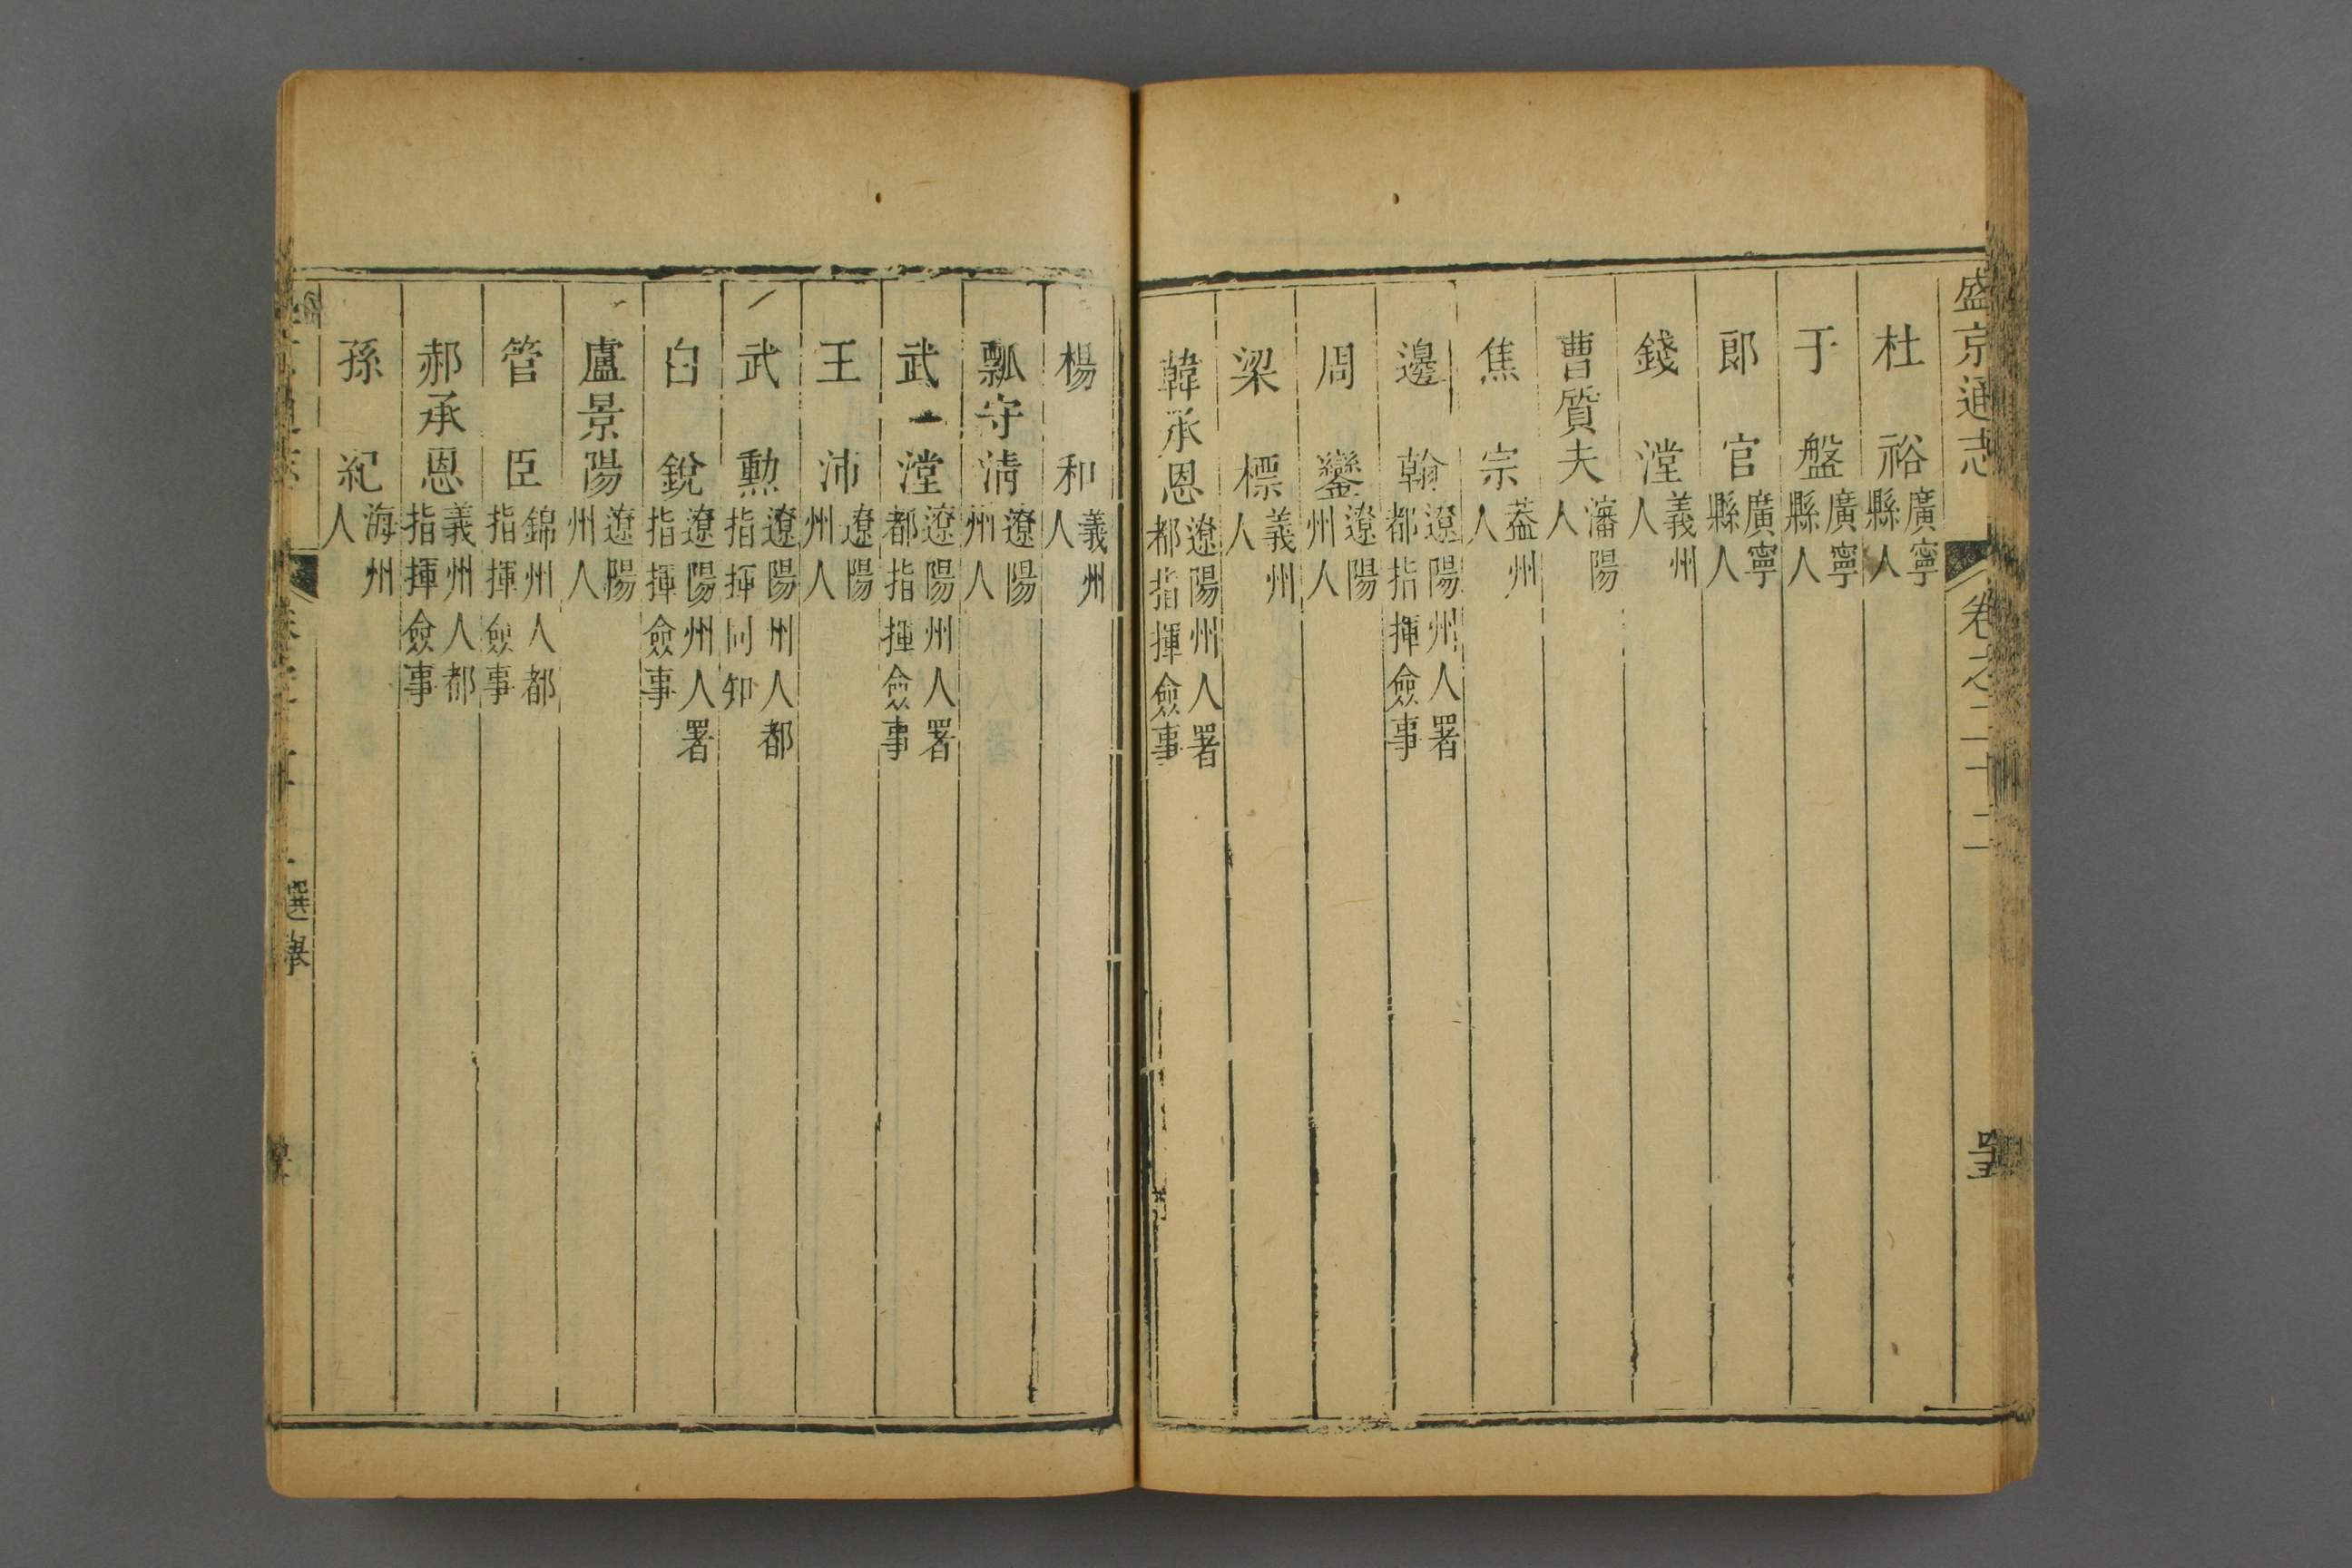 盛京通志 卷之二十二
杜裕 廣寧縣人
于盤 廣寧縣人
郎官 廣寧縣人
錢瀅 義州人
曹質夫 瀋陽人
焦宗 葢州人
邊翰 遼陽州人署都指揮僉事
周鑾 遼陽州人
梁標 義州人
韓承恩 遼陽州人署都指揮僉事
楊和 義州人
瓢守清 遼陽州人
武一瀅 遼陽州人署都指揮僉事
王沛 遼陽州人
武勲 遼陽州人都指揮同知
白銳 遼陽州人署指揮僉事
盧景陽 遼陽州人
管臣 錦州人都指揮僉事
郝承恩 義州人都指揮僉事
孫紀 海州人
選舉